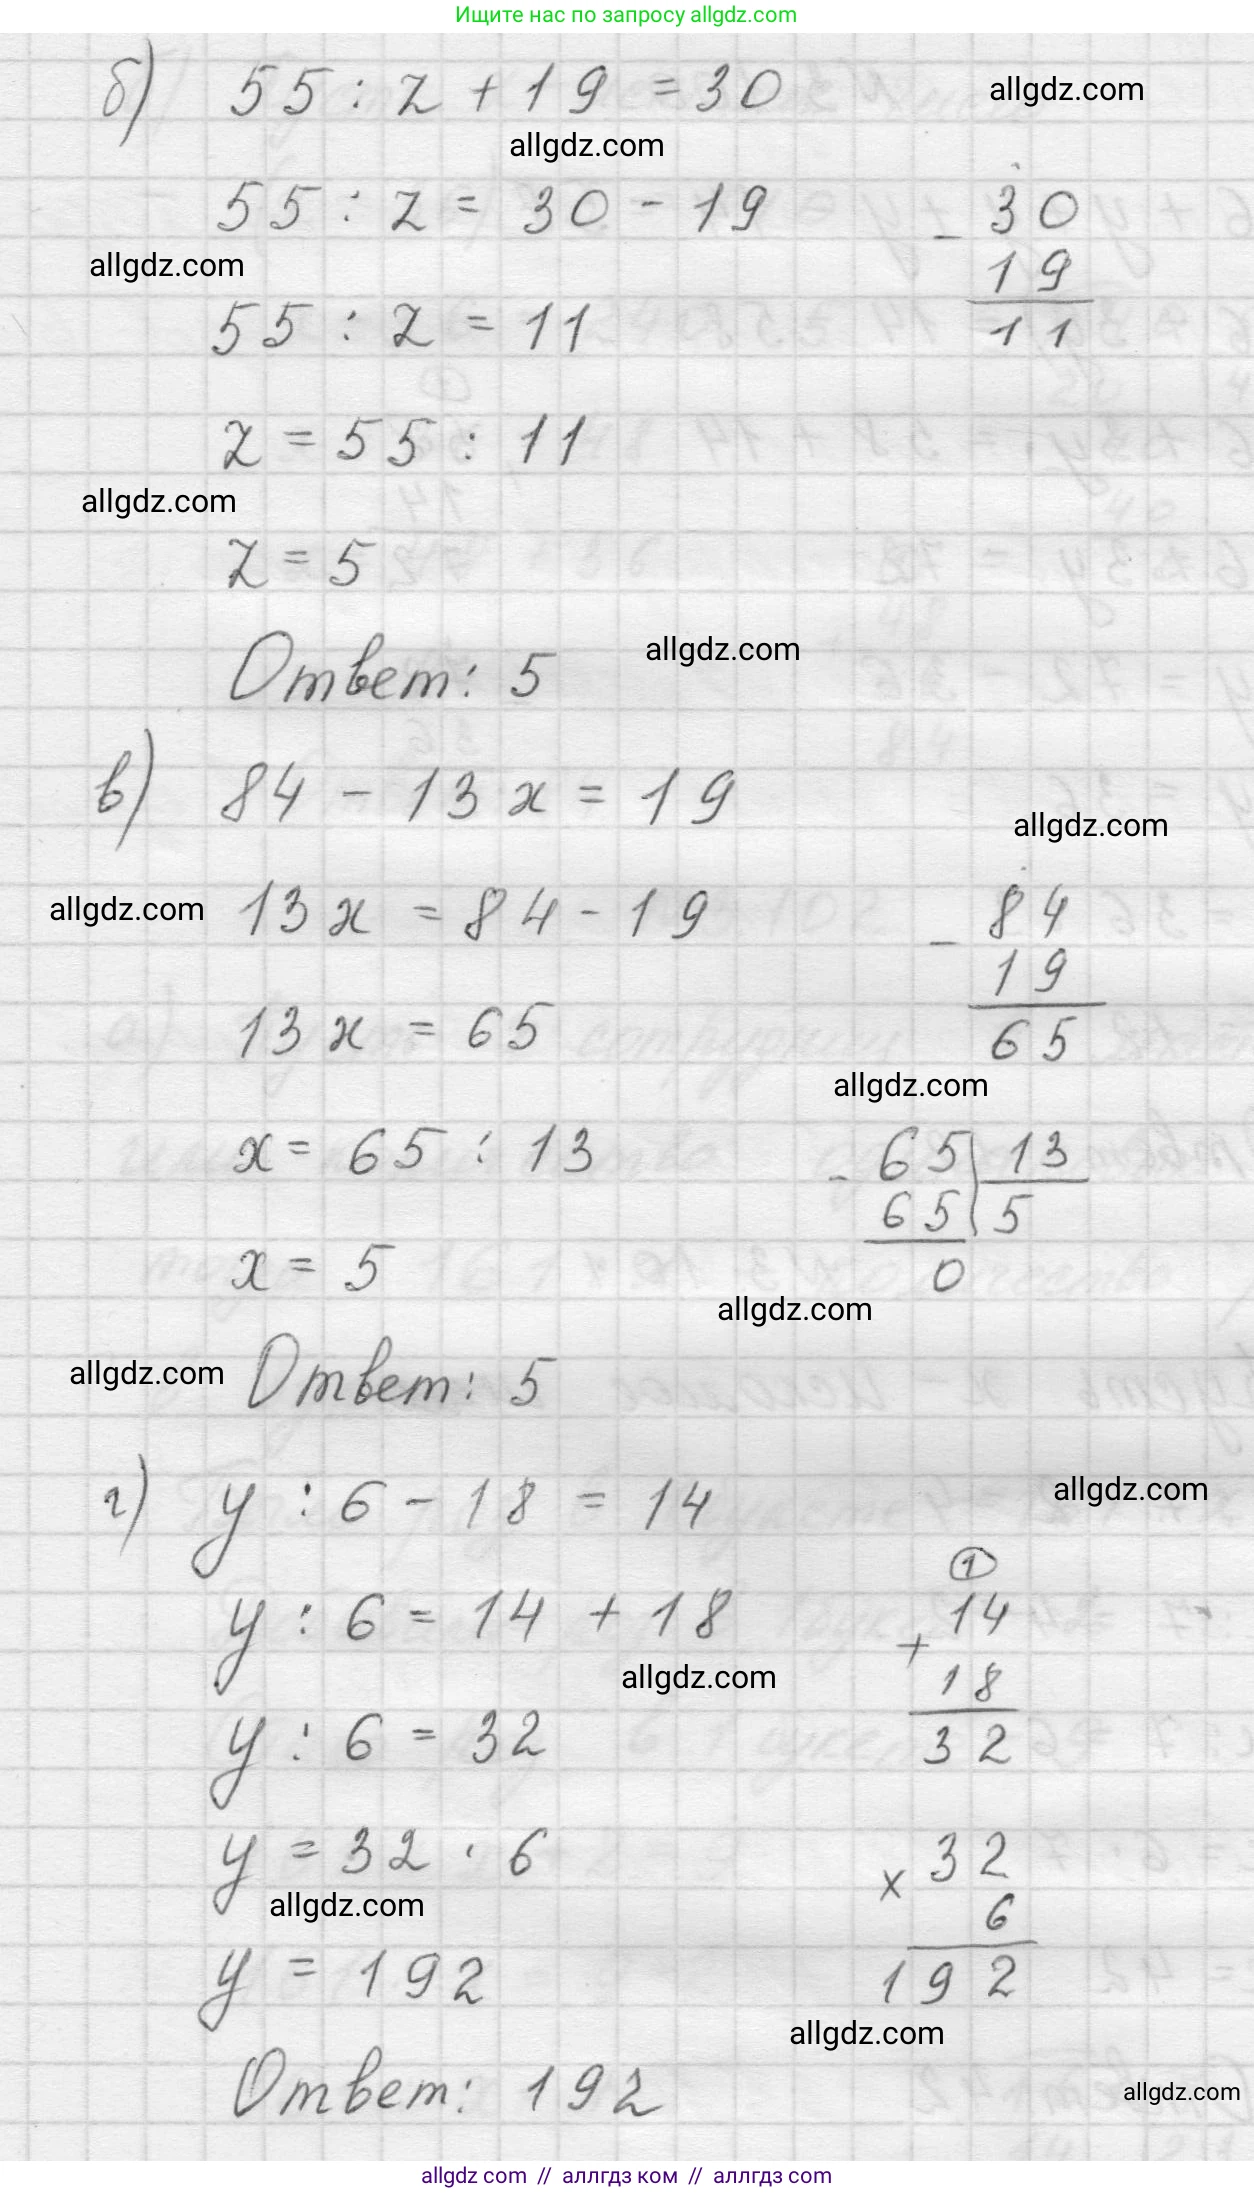 Ищите нас по запросу allgdz.com
б) 55 : z + 19 = 30
allgdz.com
allgdz.com
55 : z = 30 - 19
- 30
19
11
allgdz.com
55 : z = 11
z = 55 : 11
allgdz.com
z = 5
Ответ: 5
allgdz.com
в) 84 - 13x = 19
allgdz.com
allgdz.com
13x = 84 - 19
- 84
19
65
13x = 65
allgdz.com
x = 65 : 13
- 65 | 13
65 | 5
0
x = 5
allgdz.com
allgdz.com
Ответ: 5
г) y : 6 - 18 = 14
allgdz.com
y : 6 = 14 + 18
1
14
+ 18
32
allgdz.com
y : 6 = 32
y = 32 · 6
× 32
6
192
allgdz.com
y = 192
allgdz.com
Ответ: 192
allgdz.com
allgdz com // аллгдз ком // аллгдз com